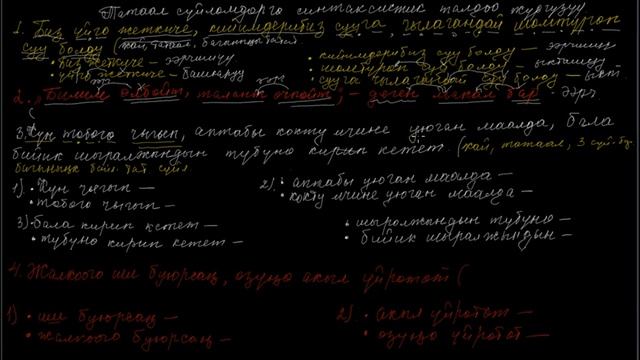 Татаал сүйлөмдөргө синтаксистик талдоо жүргүзүү
1. Биз үйгө жеткиче, кийимдерибиз сууга чылагандай шөмтүрөп
суу болду (жай, татаал, багыныңкы
• Биз жеткиче — ээрчишүү
• үйгө жеткиче — башкаруу
• кийимдерибиз суу болду — ээрчишүү
• шөмтүрөп суу болду — ыкташуу
• сууга чылагандай суу болду — ыкт.
2. „Билим өлбөйт, талант өчпөйт", — деген макал бар.
3. Күн төбөгө чыгып, аптабы көктү ичине уюган маалда, бала
бийик шыралжындын түбүнө кирип кетет (жай, татаал, 3 сүй.
1) • Күн чыгып —
• төбөгө чыгып —
2) • аптабы уюган маалда —
• көктү ичине уюган маалда —
3) • бала кирип кетет —
• түбүнө кирип кетет —
• шыралжындын түбүнө —
• бийик шыралжындын —
4. Жалкоого иш буюрсаң, өзүңө акыл үйрөтөт (
1) • иш буюрсаң —
• жалкоого буюрсаң —
2) • акыл үйрөтөт —
• өзүңө үйрөтөт —